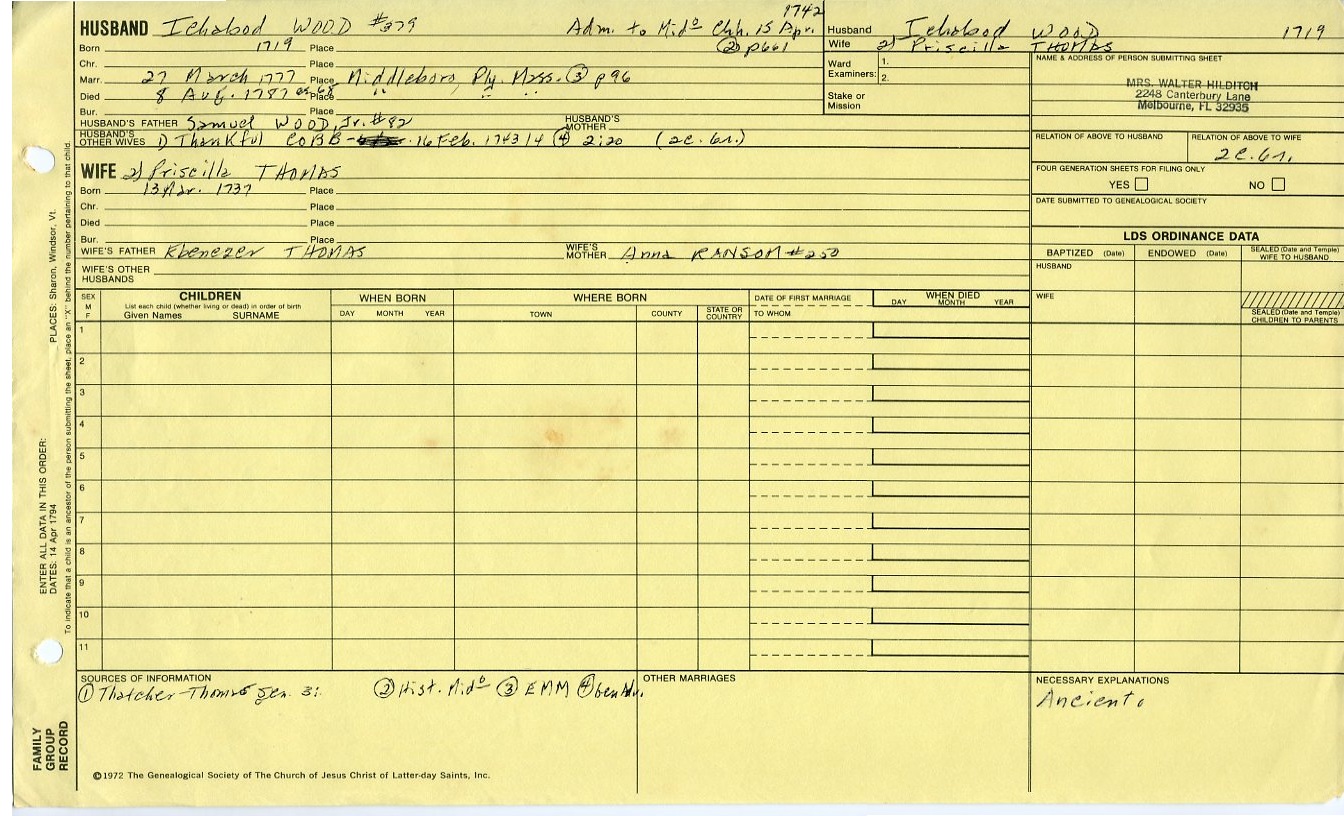 HUSBAND Ichabod WOOD #379 Adm. to Mido Chh. 15 Apr. 1742
Born 1719 Place (2) p661
Chr. Place
Marr. 27 March 1777 Place Middleboro, Ply. Mass. (3) p96
Died 8 Aug. 1787 ae 68 Place " " "
Bur. Place
HUSBAND'S FATHER Samuel WOOD, Jr. #82 HUSBAND'S MOTHER
HUSBAND'S OTHER WIVES 1) Thankful COBB - 16 Feb. 1743/4 (4) 2:20 (2c. 6r.)
WIFE 2) Priscilla THOMAS
Born 13 Apr. 1737 Place
Chr. Place
Died Place
Bur. Place
WIFE'S FATHER Ebenezer THOMAS WIFE'S MOTHER Anna RANSOM #250
WIFE'S OTHER HUSBANDS
Husband Ichabod WOOD 1719
Wife 2) Priscilla THOMAS
Ward Examiners: 1.
2.
Stake or Mission
NAME & ADDRESS OF PERSON SUBMITTING SHEET
MRS. WALTER HILDITCH
2248 Canterbury Lane
Melbourne, FL 32935
RELATION OF ABOVE TO HUSBAND RELATION OF ABOVE TO WIFE
2c. 6r.
FOUR GENERATION SHEETS FOR FILING ONLY
YES NO
DATE SUBMITTED TO GENEALOGICAL SOCIETY
LDS ORDINANCE DATA
BAPTIZED (Date) ENDOWED (Date) SEALED (Date and Temple) WIFE TO HUSBAND
HUSBAND
WIFE
SEALED (Date and Temple) CHILDREN TO PARENTS
SEX M F CHILDREN WHEN BORN WHERE BORN DATE OF FIRST MARRIAGE WHEN DIED
List each child (whether living or dead) in order of birth
Given Names SURNAME DAY MONTH YEAR TOWN COUNTY STATE OR COUNTRY TO WHOM DAY MONTH YEAR
1
2
3
4
5
6
7
8
9
10
11
SOURCES OF INFORMATION
(1) Thatcher-Thomas Gen. 31 (2) Hist. Mido (3) EMM (4)
OTHER MARRIAGES
NECESSARY EXPLANATIONS
Ancient.
©1972 The Genealogical Society of The Church of Jesus Christ of Latter-day Saints, Inc.
FAMILY GROUP RECORD
ENTER ALL DATA IN THIS ORDER:
DATES: 14 Apr 1794 PLACES: Sharon, Windsor, Vt.
To indicate that a child is an ancestor of the person submitting the sheet, place an "X" behind the number pertaining to that child.